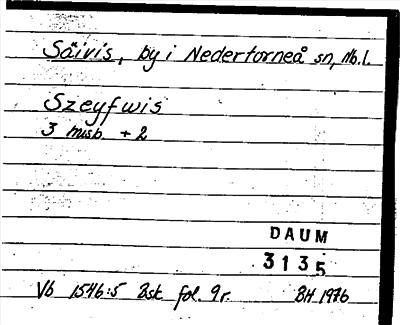 Säivis, by i Nedertorneå sn, Nb.l.
Szeyfwis
3 msb. + 2
DAUM
3135
Vb 1546:5 Bsk fol. 9r. BH 1976